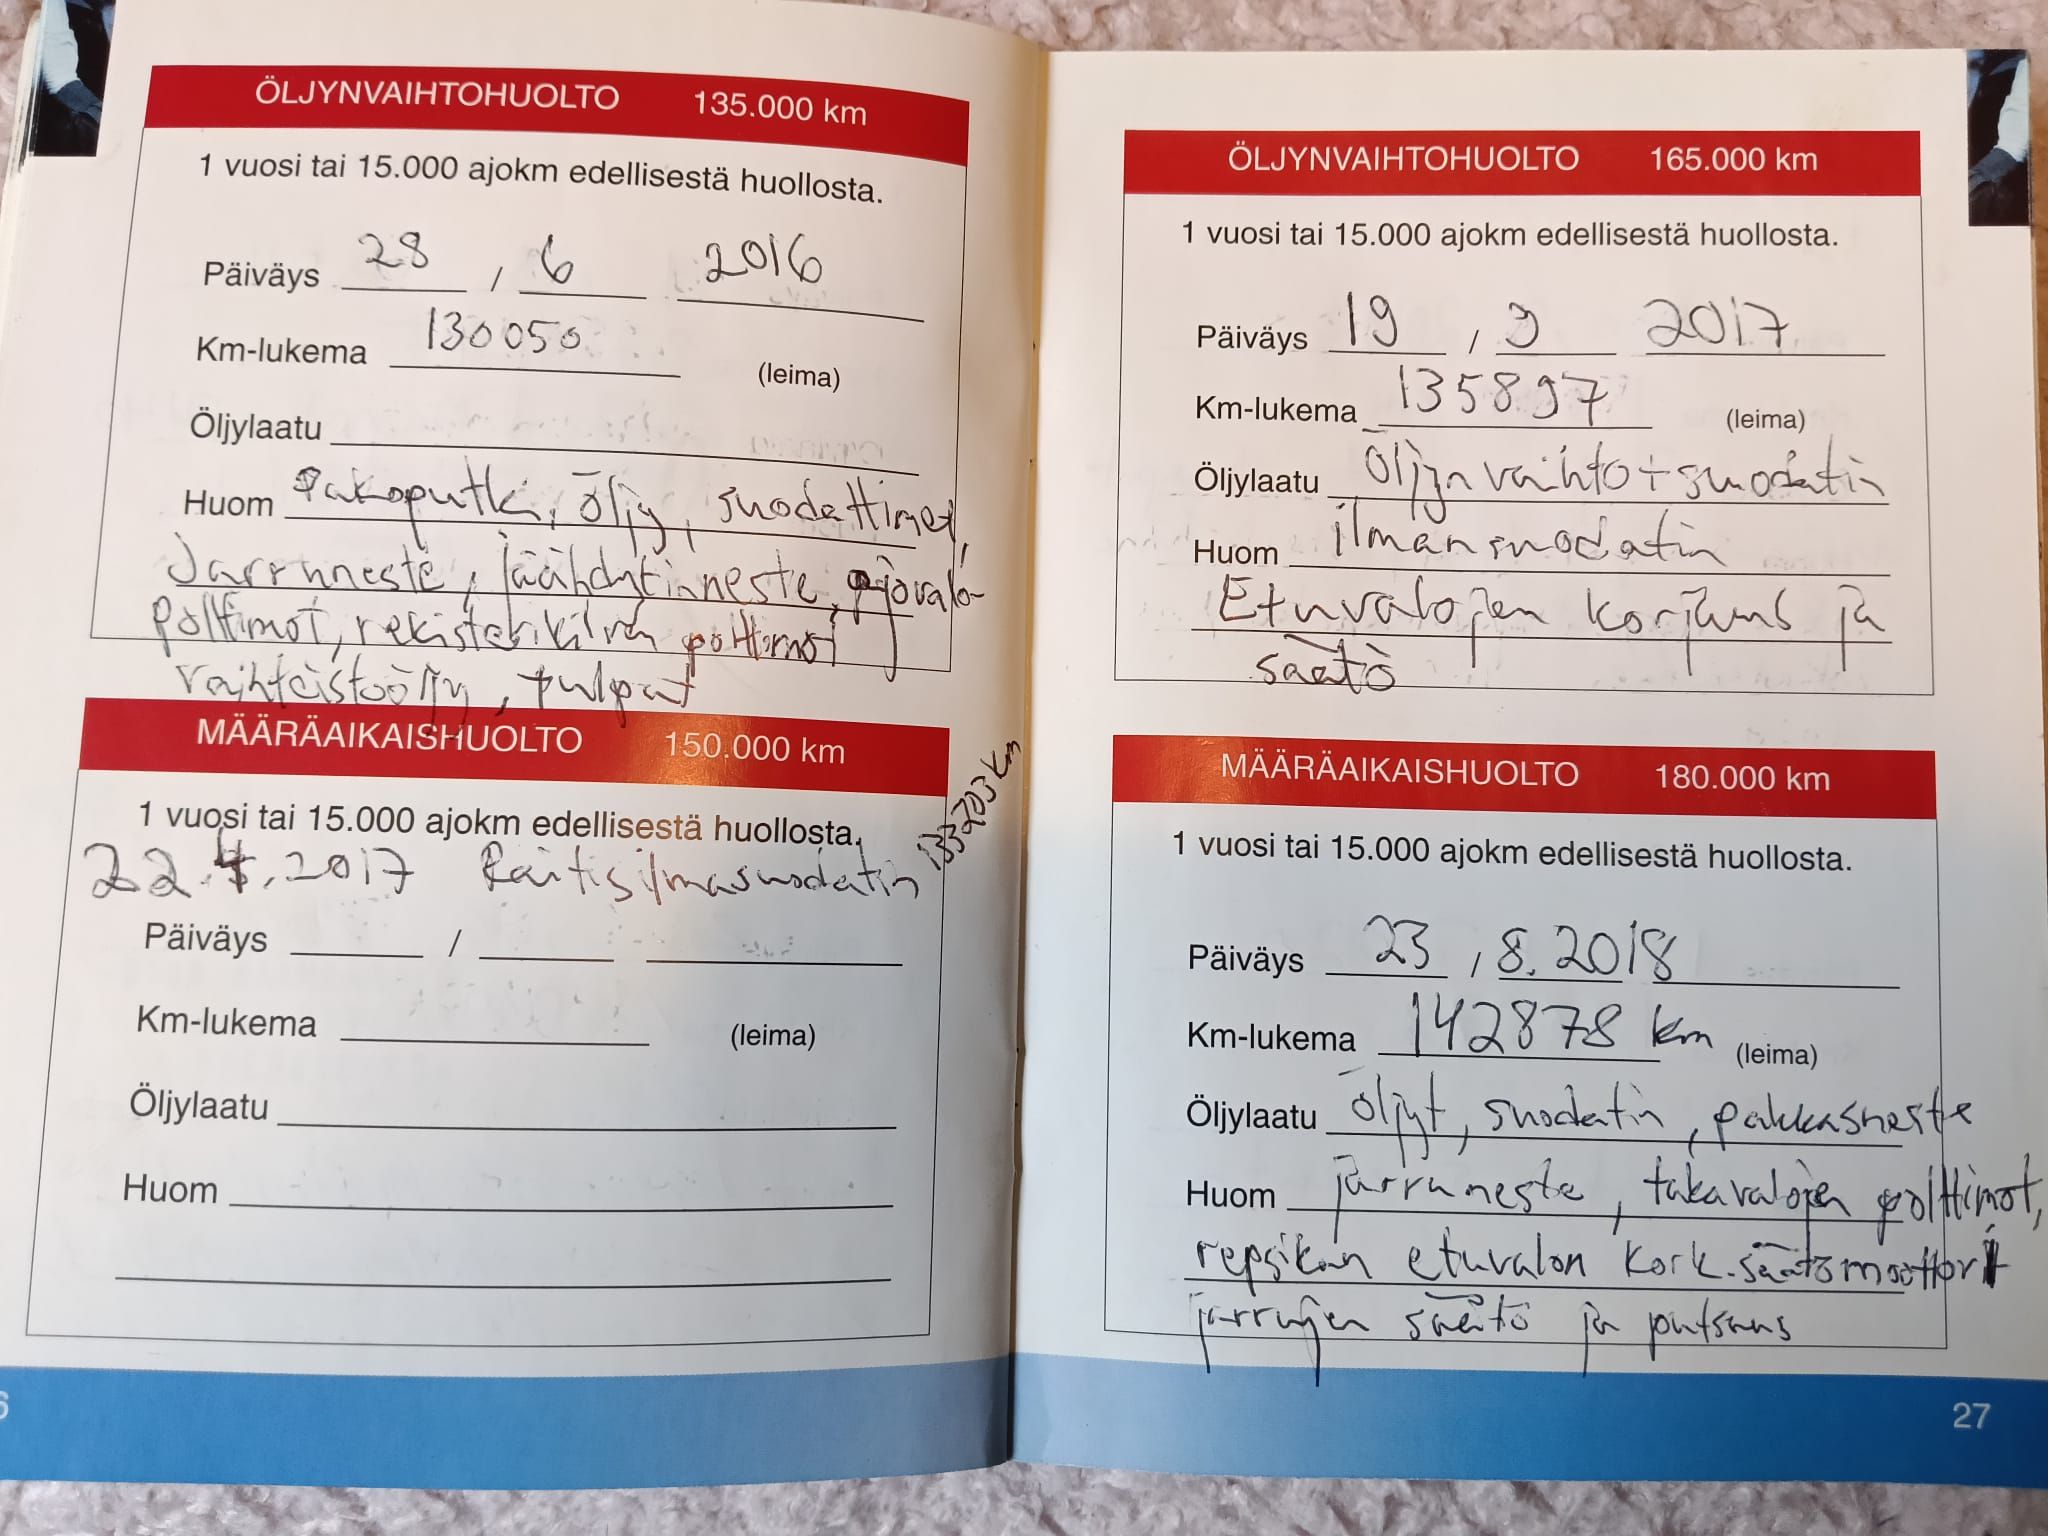 ÖLJYNVAIHTOHUOLTO 135.000 km
1 vuosi tai 15.000 ajokm edellisestä huollosta.
Päiväys 28 / 6 2016
Km-lukema 130050 (leima)
Öljylaatu
Huom Pakoputki, öljy, suodattimet,
Jarruneste, jäähdytinneste, ajovalo-
polttimot, rekisterikilven polttimot
vaihteistoöljy, tulpat
MÄÄRÄAIKAISHUOLTO 150.000 km
1 vuosi tai 15.000 ajokm edellisestä huollosta.
133203 km
22.4.2017 Raitisilmasuodatin
Päiväys /
Km-lukema (leima)
Öljylaatu
Huom
6
ÖLJYNVAIHTOHUOLTO 165.000 km
1 vuosi tai 15.000 ajokm edellisestä huollosta.
Päiväys 19 / 9 2017
Km-lukema 135897 (leima)
Öljylaatu Öljynvaihto + suodatin
Huom ilmansuodatin
Etuvalojen korjaus ja
säätö
MÄÄRÄAIKAISHUOLTO 180.000 km
1 vuosi tai 15.000 ajokm edellisestä huollosta.
Päiväys 23 / 8. 2018
Km-lukema 142878 km (leima)
Öljylaatu öljyt, suodatin, pakkasneste
Huom jarruneste, takavalojen polttimot,
repsikan etuvalon kork.säätömoottori
jarrujen säätö ja putsaus
27